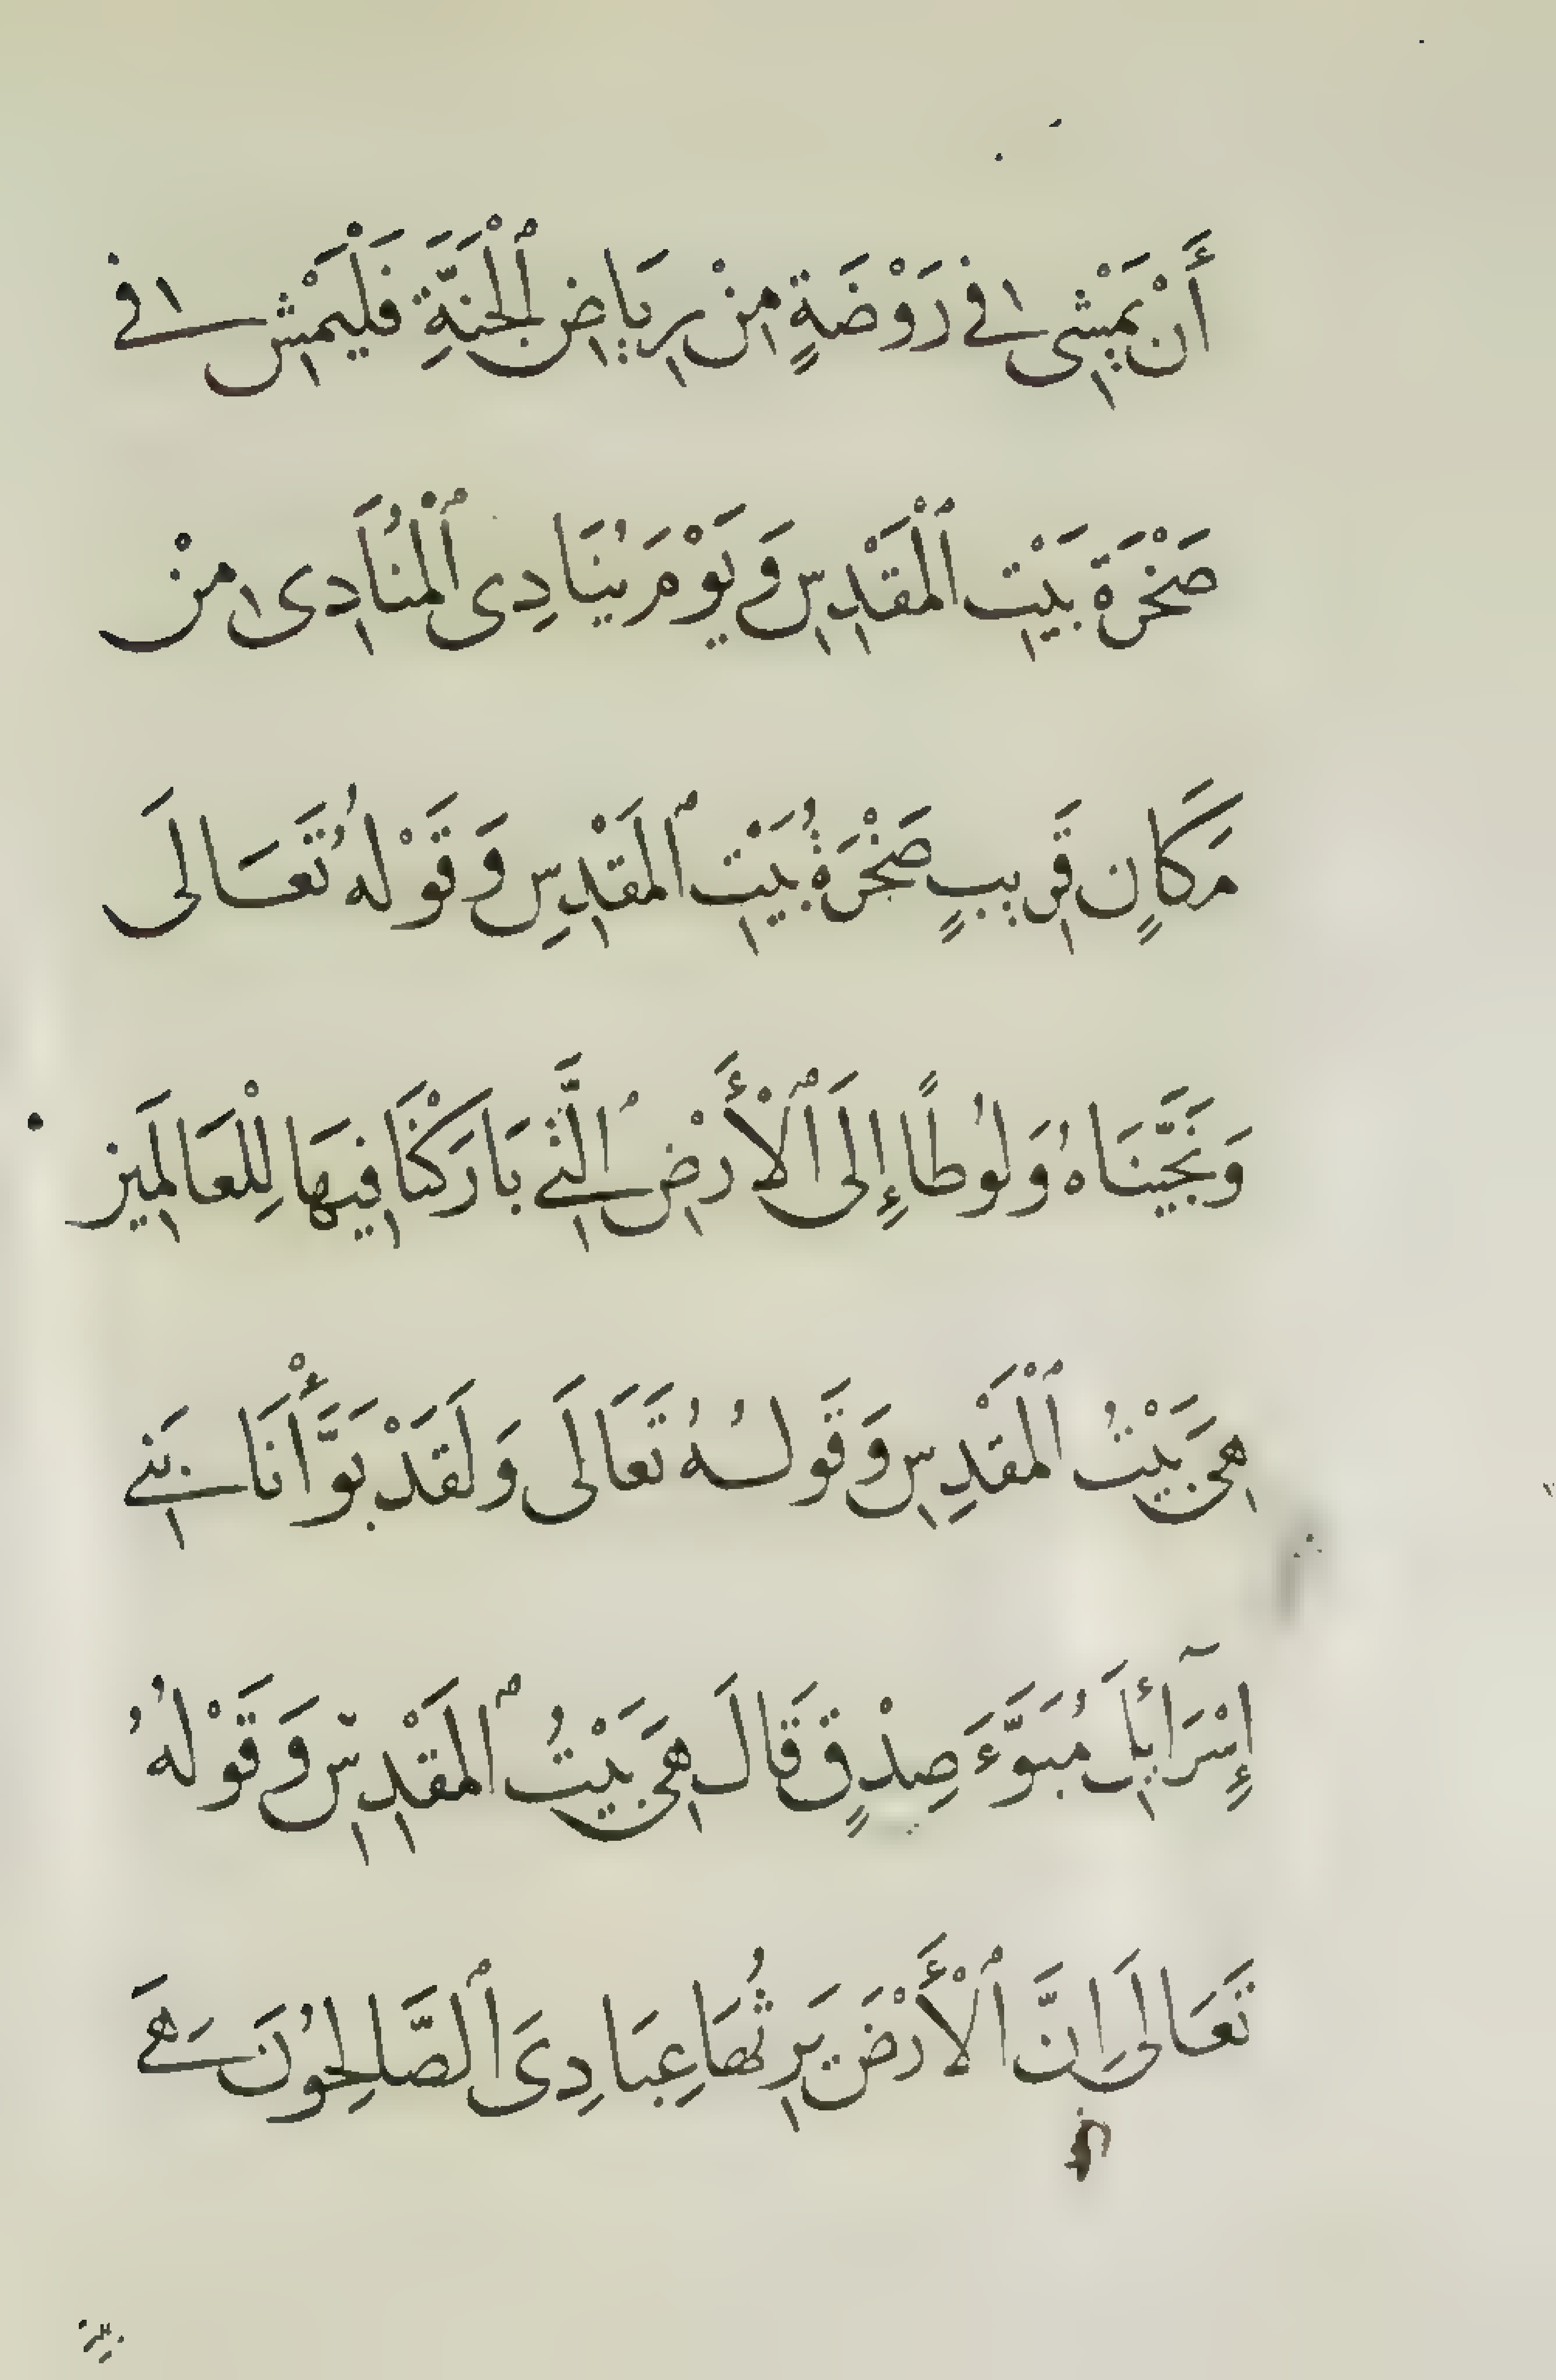 أَنْ يَمْشِى فِى رَوْضَةٍ مِنْ رِيَاضِ ٱلْجَنَّةِ فَلْيَمْشِ فِى
صَخْرَةَ بَيْتِ ٱلْمَقْدِسِ وَيَوْمَ يُنَادِى ٱلْمُنَادِى مِنْ
مَكَانٍ قَرِيبٍ صَخْرَةُ بَيْتِ ٱلمَقْدِسِ وَقَوْلُهُ تَعَالَى
وَنَجَّيْنَاهُ وَلُوطًا إِلَى ٱلْأَرْضِ ٱلَّتِى بَارَكْنَا فِيهَا لِلْعَالَمِينَ
هِىَ بَيْتُ ٱلْمَقْدِسِ وَقَولُهُ تَعَالَى وَلَقَدْ بَوَّأْنَا بَنِى
إِسْرَآئِلَ مُبَوَّءَ صِدْقٍ قَالَ هِىَ بَيْتُ ٱلمَقْدِسِ وَقَوْلُهُ
تَعَالَى إِنَّ ٱلْأَرْضَ يَرِثُهَا عِبَادِىَ ٱلصَّالِحُونَ هِىَ